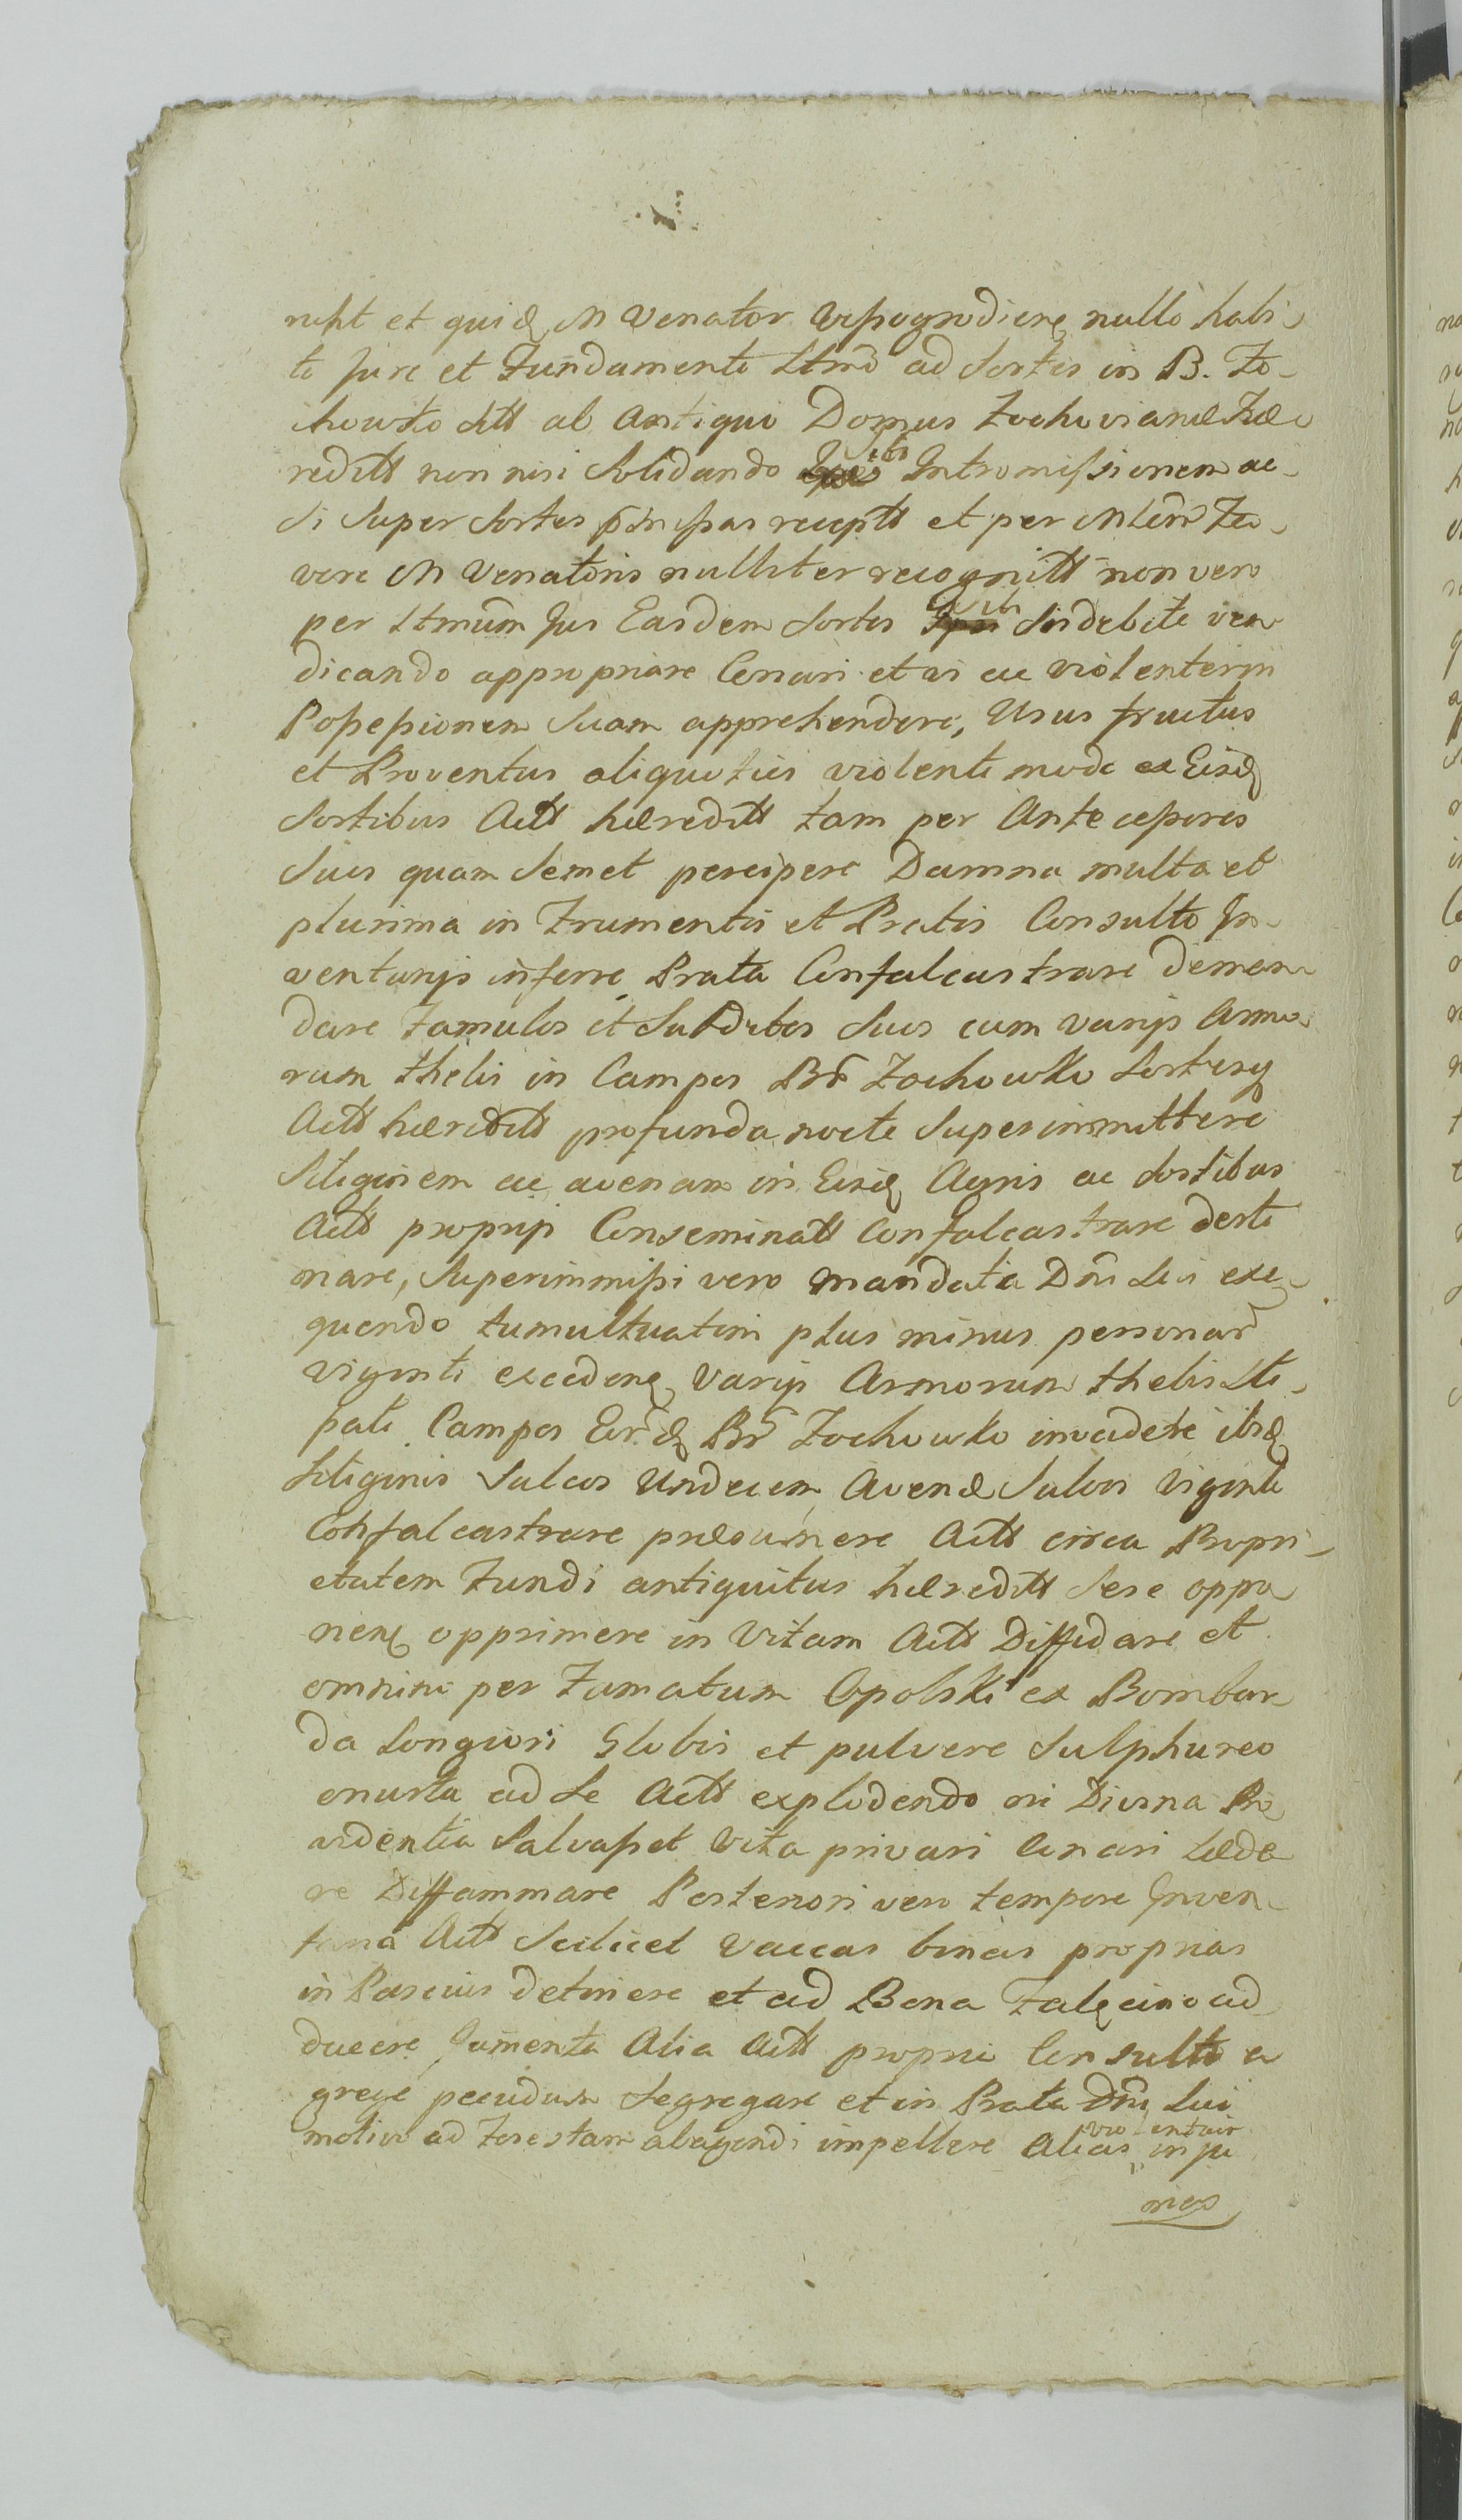 et quidq M Venator Vyszogrodien nullo habi-
to Jure et Fundamento ltmo ad Sortes in B. Zo-
chowko Att ab Antiquo Domus Zochoviana Hæ-
reditt non nisi Solidando Intromissionem ac
si super Sortes pmissas receptt et per
vere M Venatoris nulliter recognitt non vero
per ltmum Jus Easdem Sortes sibi Indebite ven
dicando appropriare Conari et vi ac violenter in
Possessionem Suam apprehendere, Usus fructus
et Proventus aliquoties violento modo ex Eisdq
Sortibus Actt hæreditt tam per Antecessores
Suos quam Semet percipere Damna multa et
plurima in Frumentis et Pratis Consulto In-
ventarijs inferre Prata Confalcastrare deman
dare Famulos et Subditos Suos cum varijs Armo
rum thelis in Campos Br Zochowko Sortesq
Actt hæreditt profunda nocte Superimmittere
Siliginem ac avenam in Eisdq Agris ac Sortibus
Actt proprijs Conseminatt Confalcastrare desti
nare, Superimmissi vero mandata Dni Sui exe-
quendo tumultuatim plus minus personar
viginti excedenq varijs Armorum thelis Sti-
pati Campos Eordq Br Zochowko invadere ibidq
Siliginis Sulcos Undecem Avenæ Sulcos Viginti
Confalcastrare præsumere Actt circa Propri-
etatem Fundi antiquitus hæreditt Sese oppo
nenq opprimere in Vitam Actt Diffidare et
omnino per Famatum Opolski ex Bombar
da Longiori Globis et pulvere Sulphureo
onusta ad Se Actt explodendo ni Divina Pro
videntia Salvasset Vita privari Conari Læde
re Diffammare Posteriori vero tempore Inven
taria Actt Scilicet Vaccas binas proprias
in Pascuis detinere et ad Bona Falęcino ad
ducere Jumenta Alia Actt propria Consulto a
grege pecudum Segregare et in Prata Dni Sui
motivo ad Forestam abagendi impellere Alias violentas inju
rias